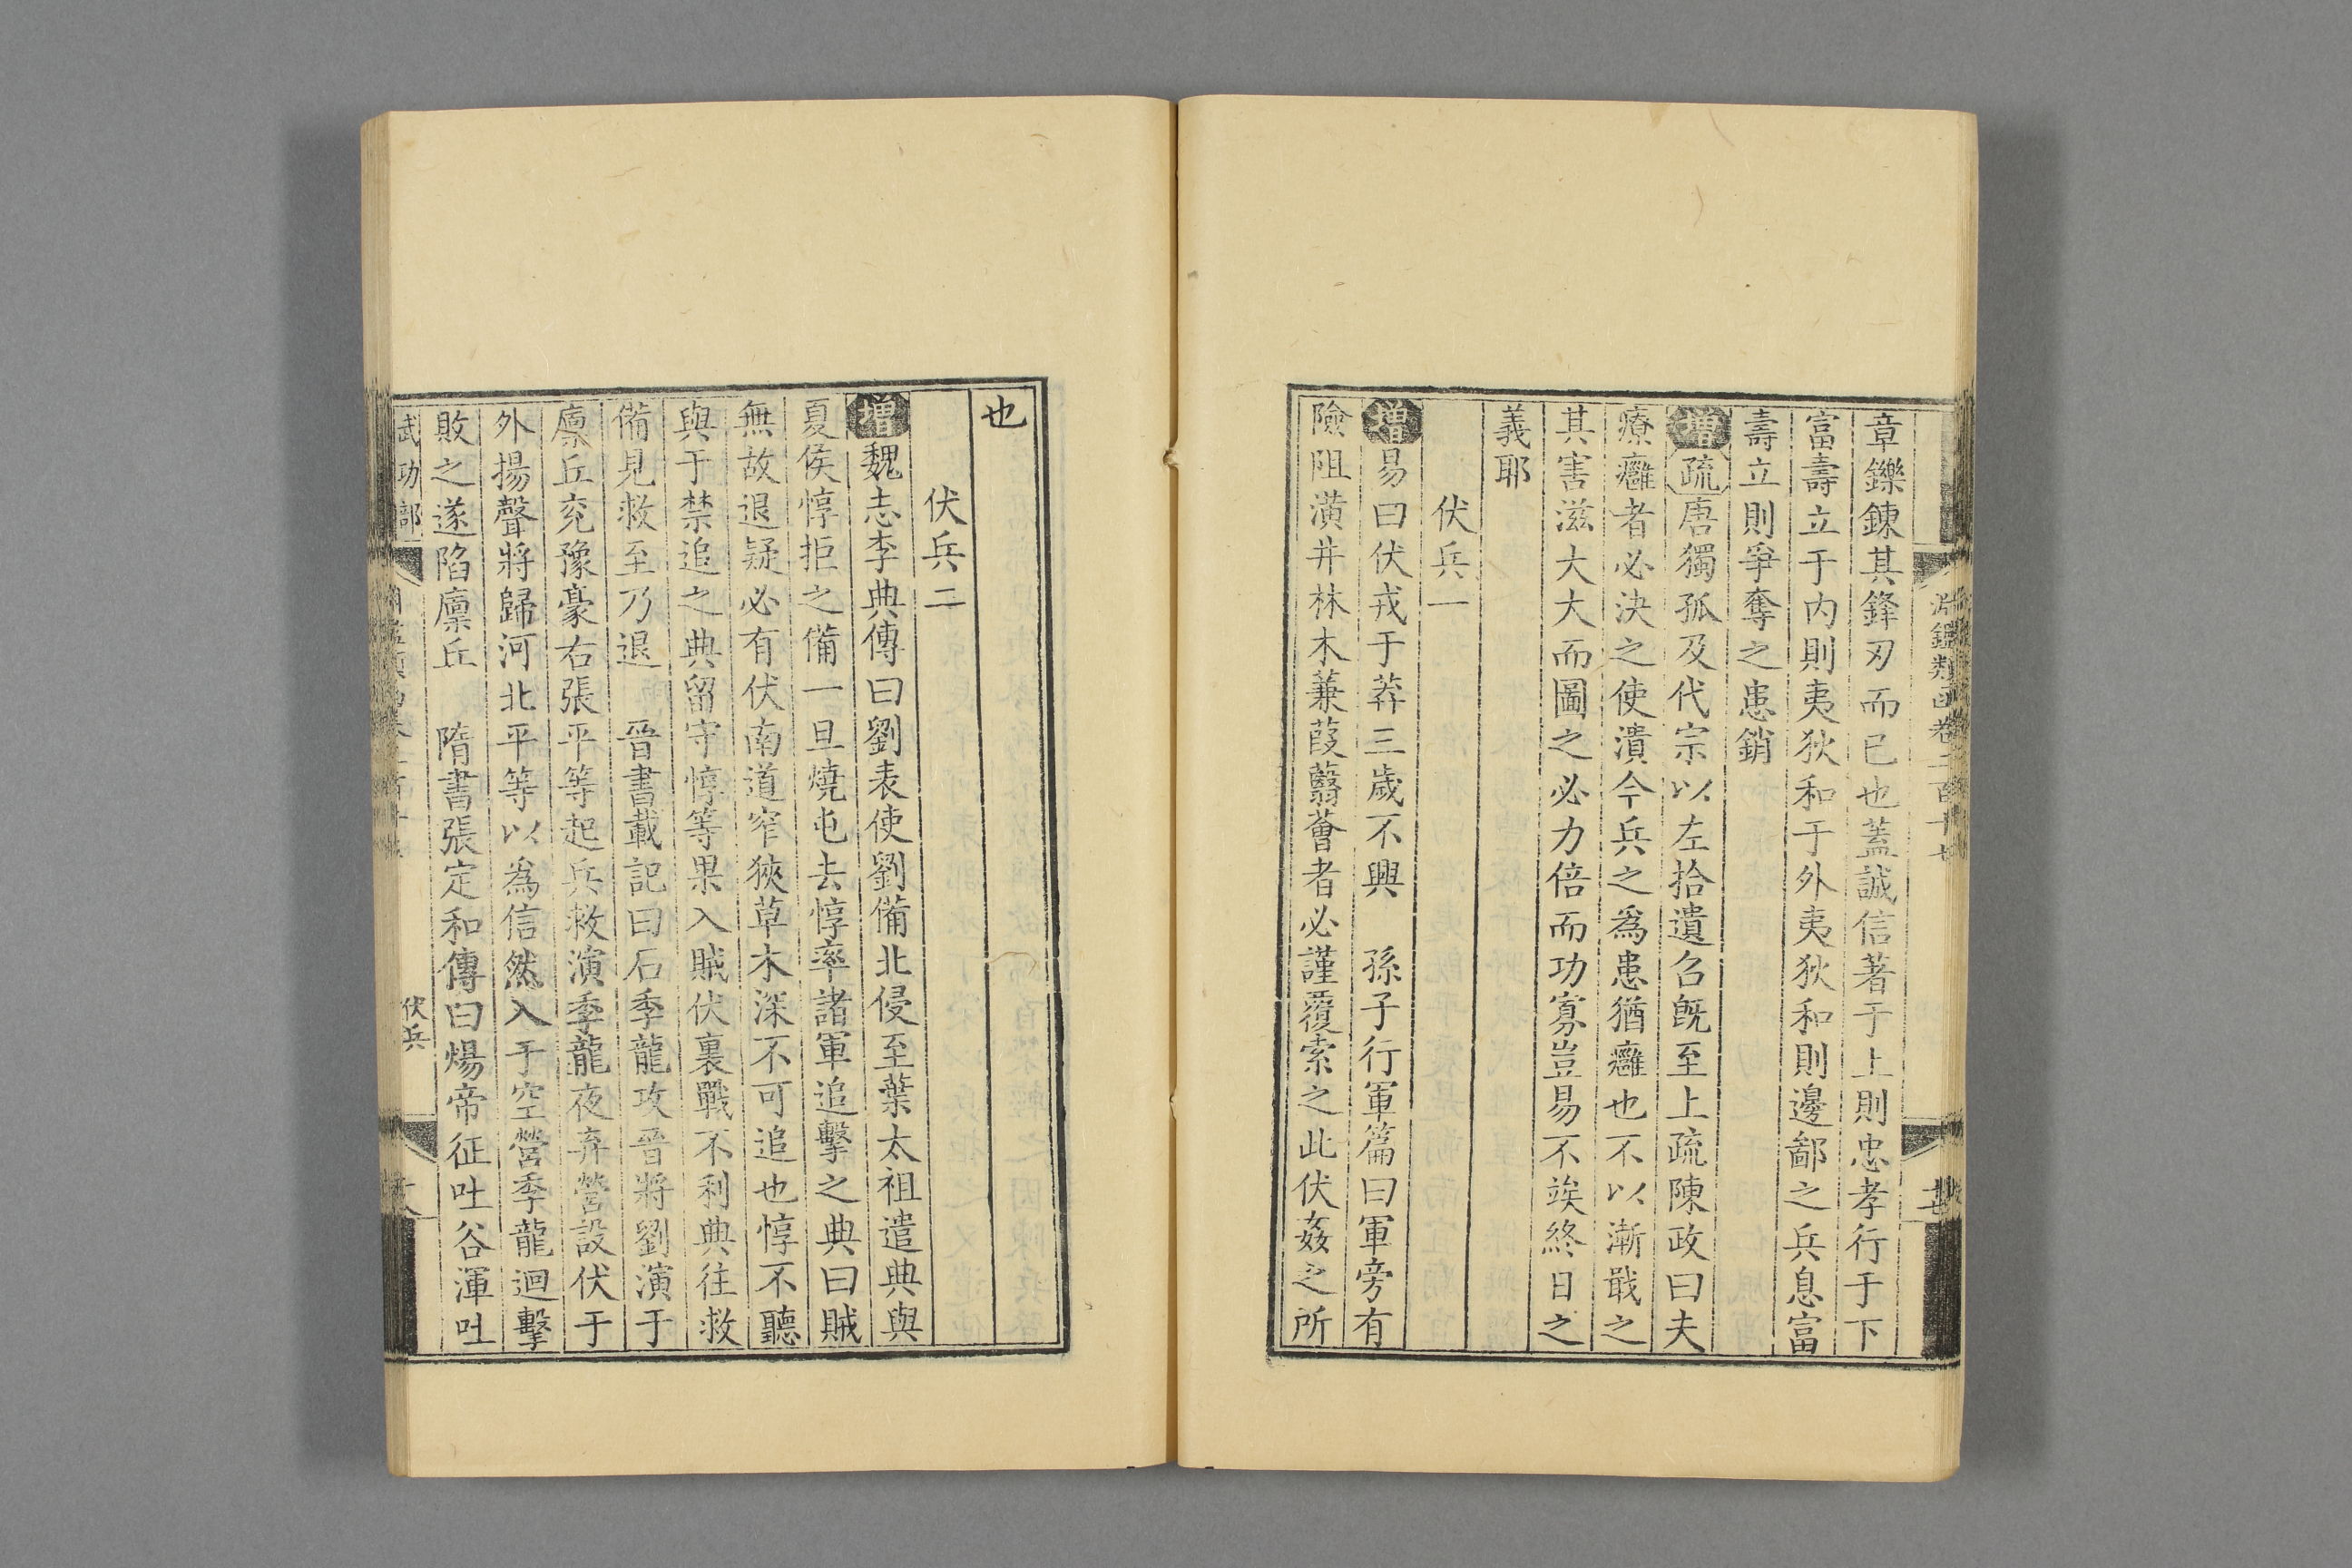 淵鑑類函卷二百十七
章鑠鍊其鋒刃而已也蓋誠信著于上則忠孝行于下
富壽立于内則夷狄和于外夷狄和則邊鄙之兵息富
壽立則爭奪之患銷
增疏唐獨孤及代宗以左拾遺召旣至上疏陳政曰夫
療癰者必決之使潰今兵之爲患猶癰也不以漸戢之
其害滋大大而圖之必力倍而功寡豈易不竢終日之
義耶
伏兵一
增易曰伏戎于莽三歲不興　孫子行軍篇曰軍旁有
險阻潢井林木蒹葭蘙薈者必謹覆索之此伏姦之所
也
伏兵二
增魏志李典傳曰劉表使劉備北侵至葉太祖遣典與
夏侯惇拒之備一旦燒屯去惇率諸軍追擊之典曰賊
無故退疑必有伏南道窄狹草木深不可追也惇不聽
與于禁追之典留守惇等果入賊伏裏戰不利典往救
備見救至乃退　晉書載記曰石季龍攻晉將劉演于
廪丘兖豫豪右張平等起兵救演季龍夜弃營設伏于
外揚聲將歸河北平等以爲信然入于空營季龍迴擊
敗之遂陷廪丘　隋書張定和傳曰煬帝征吐谷渾吐
武功部
伏兵